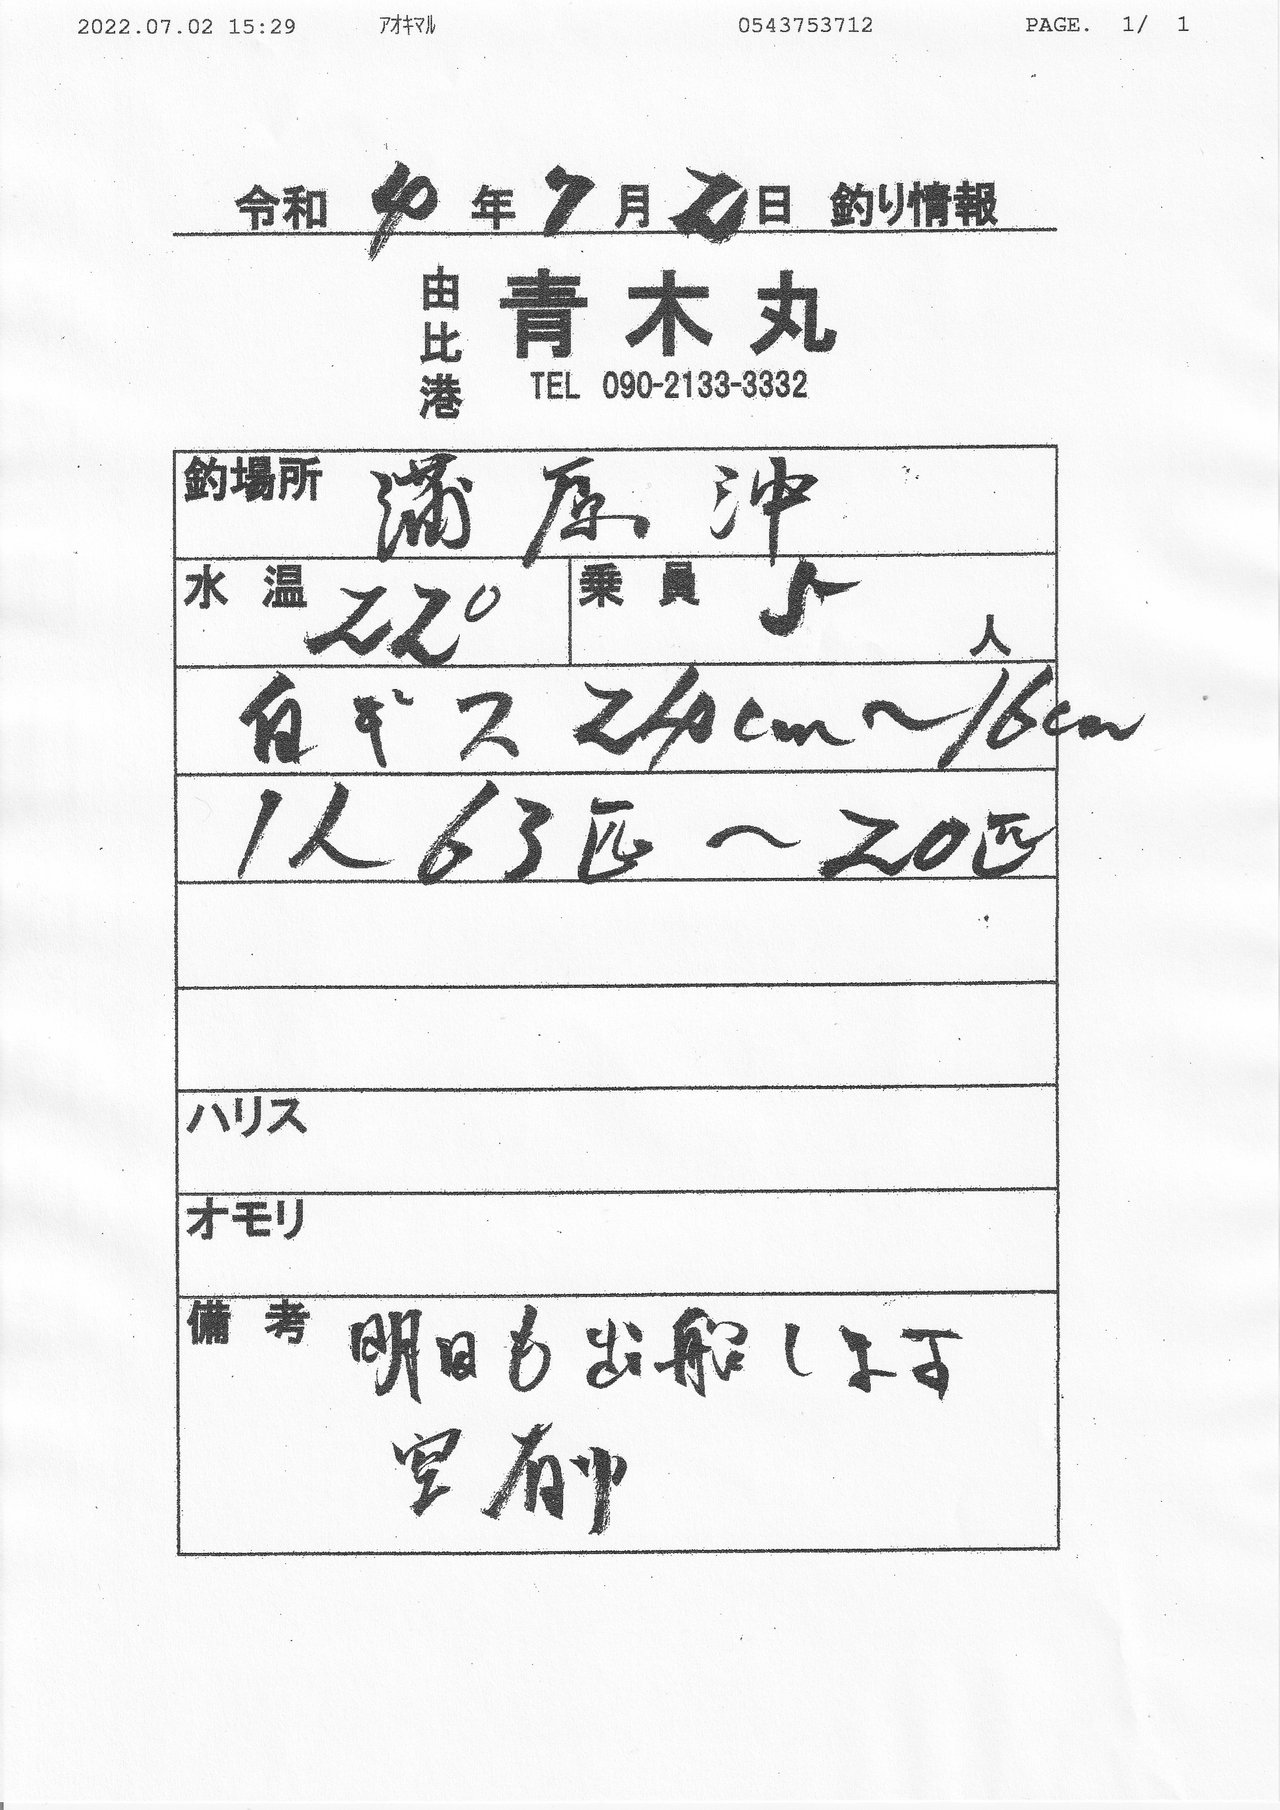 2022.07.02 15:29 ｱｵｷﾏﾙ 0543753712 PAGE. 1/ 1
令和 4 年 7 月 2 日 釣り情報
由比港 青木丸
TEL 090-2133-3332
釣場所 蒲原沖
水温 22° 乗員 5 人
白ギス 24cm～16cm
1人 63匹～20匹
ハリス
オモリ
備考 明日も出船します
空有り